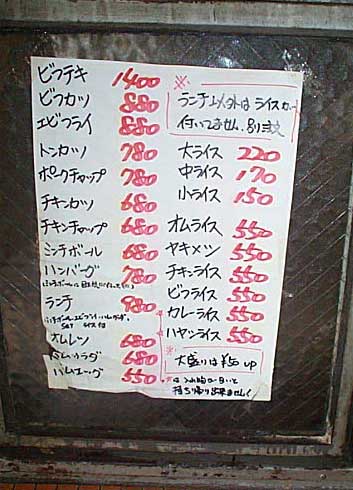 ビフテキ 1400
ビフカツ 880
エビフライ 880
トンカツ 780
ポークチャップ 780
チキンカツ 680
チキンチャップ 680
ミンチボール 680
ハンバーグ 780
ランチ 980
オムレツ 680
ハムサラダ 680
ハムエッグ 550
※
ランチ以外はライスが
付いてません。別注文
大ライス 220
中ライス 170
小ライス 150
オムライス 550
ヤキメシ 550
チキンライス 550
ビフライス 550
カレーライス 550
ハヤシライス 550
※大盛りは¥50 up
持ち帰り出来ません